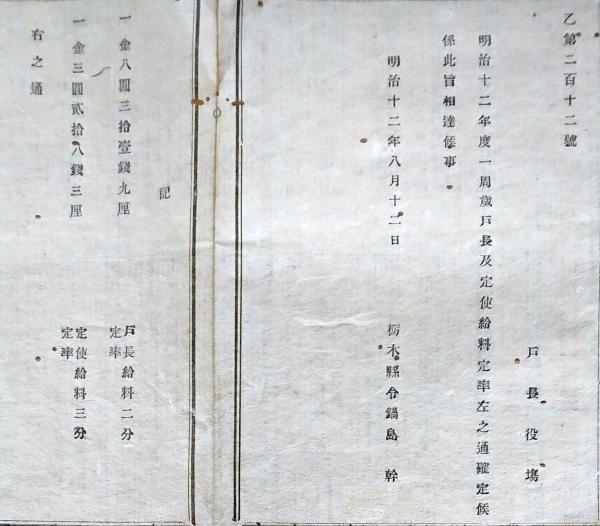 乙第二百十二號
戸長役塲
明治十二年度一周歳戸長及定使給料定率左之通確定候
係此旨相達候事
明治十二年八月十二日
栃木縣令鍋島幹
記
一金八圓三拾壹錢九厘
戸長給料二分
定率
一金三圓貳拾八錢三厘
定使給料三分
定率
右之通